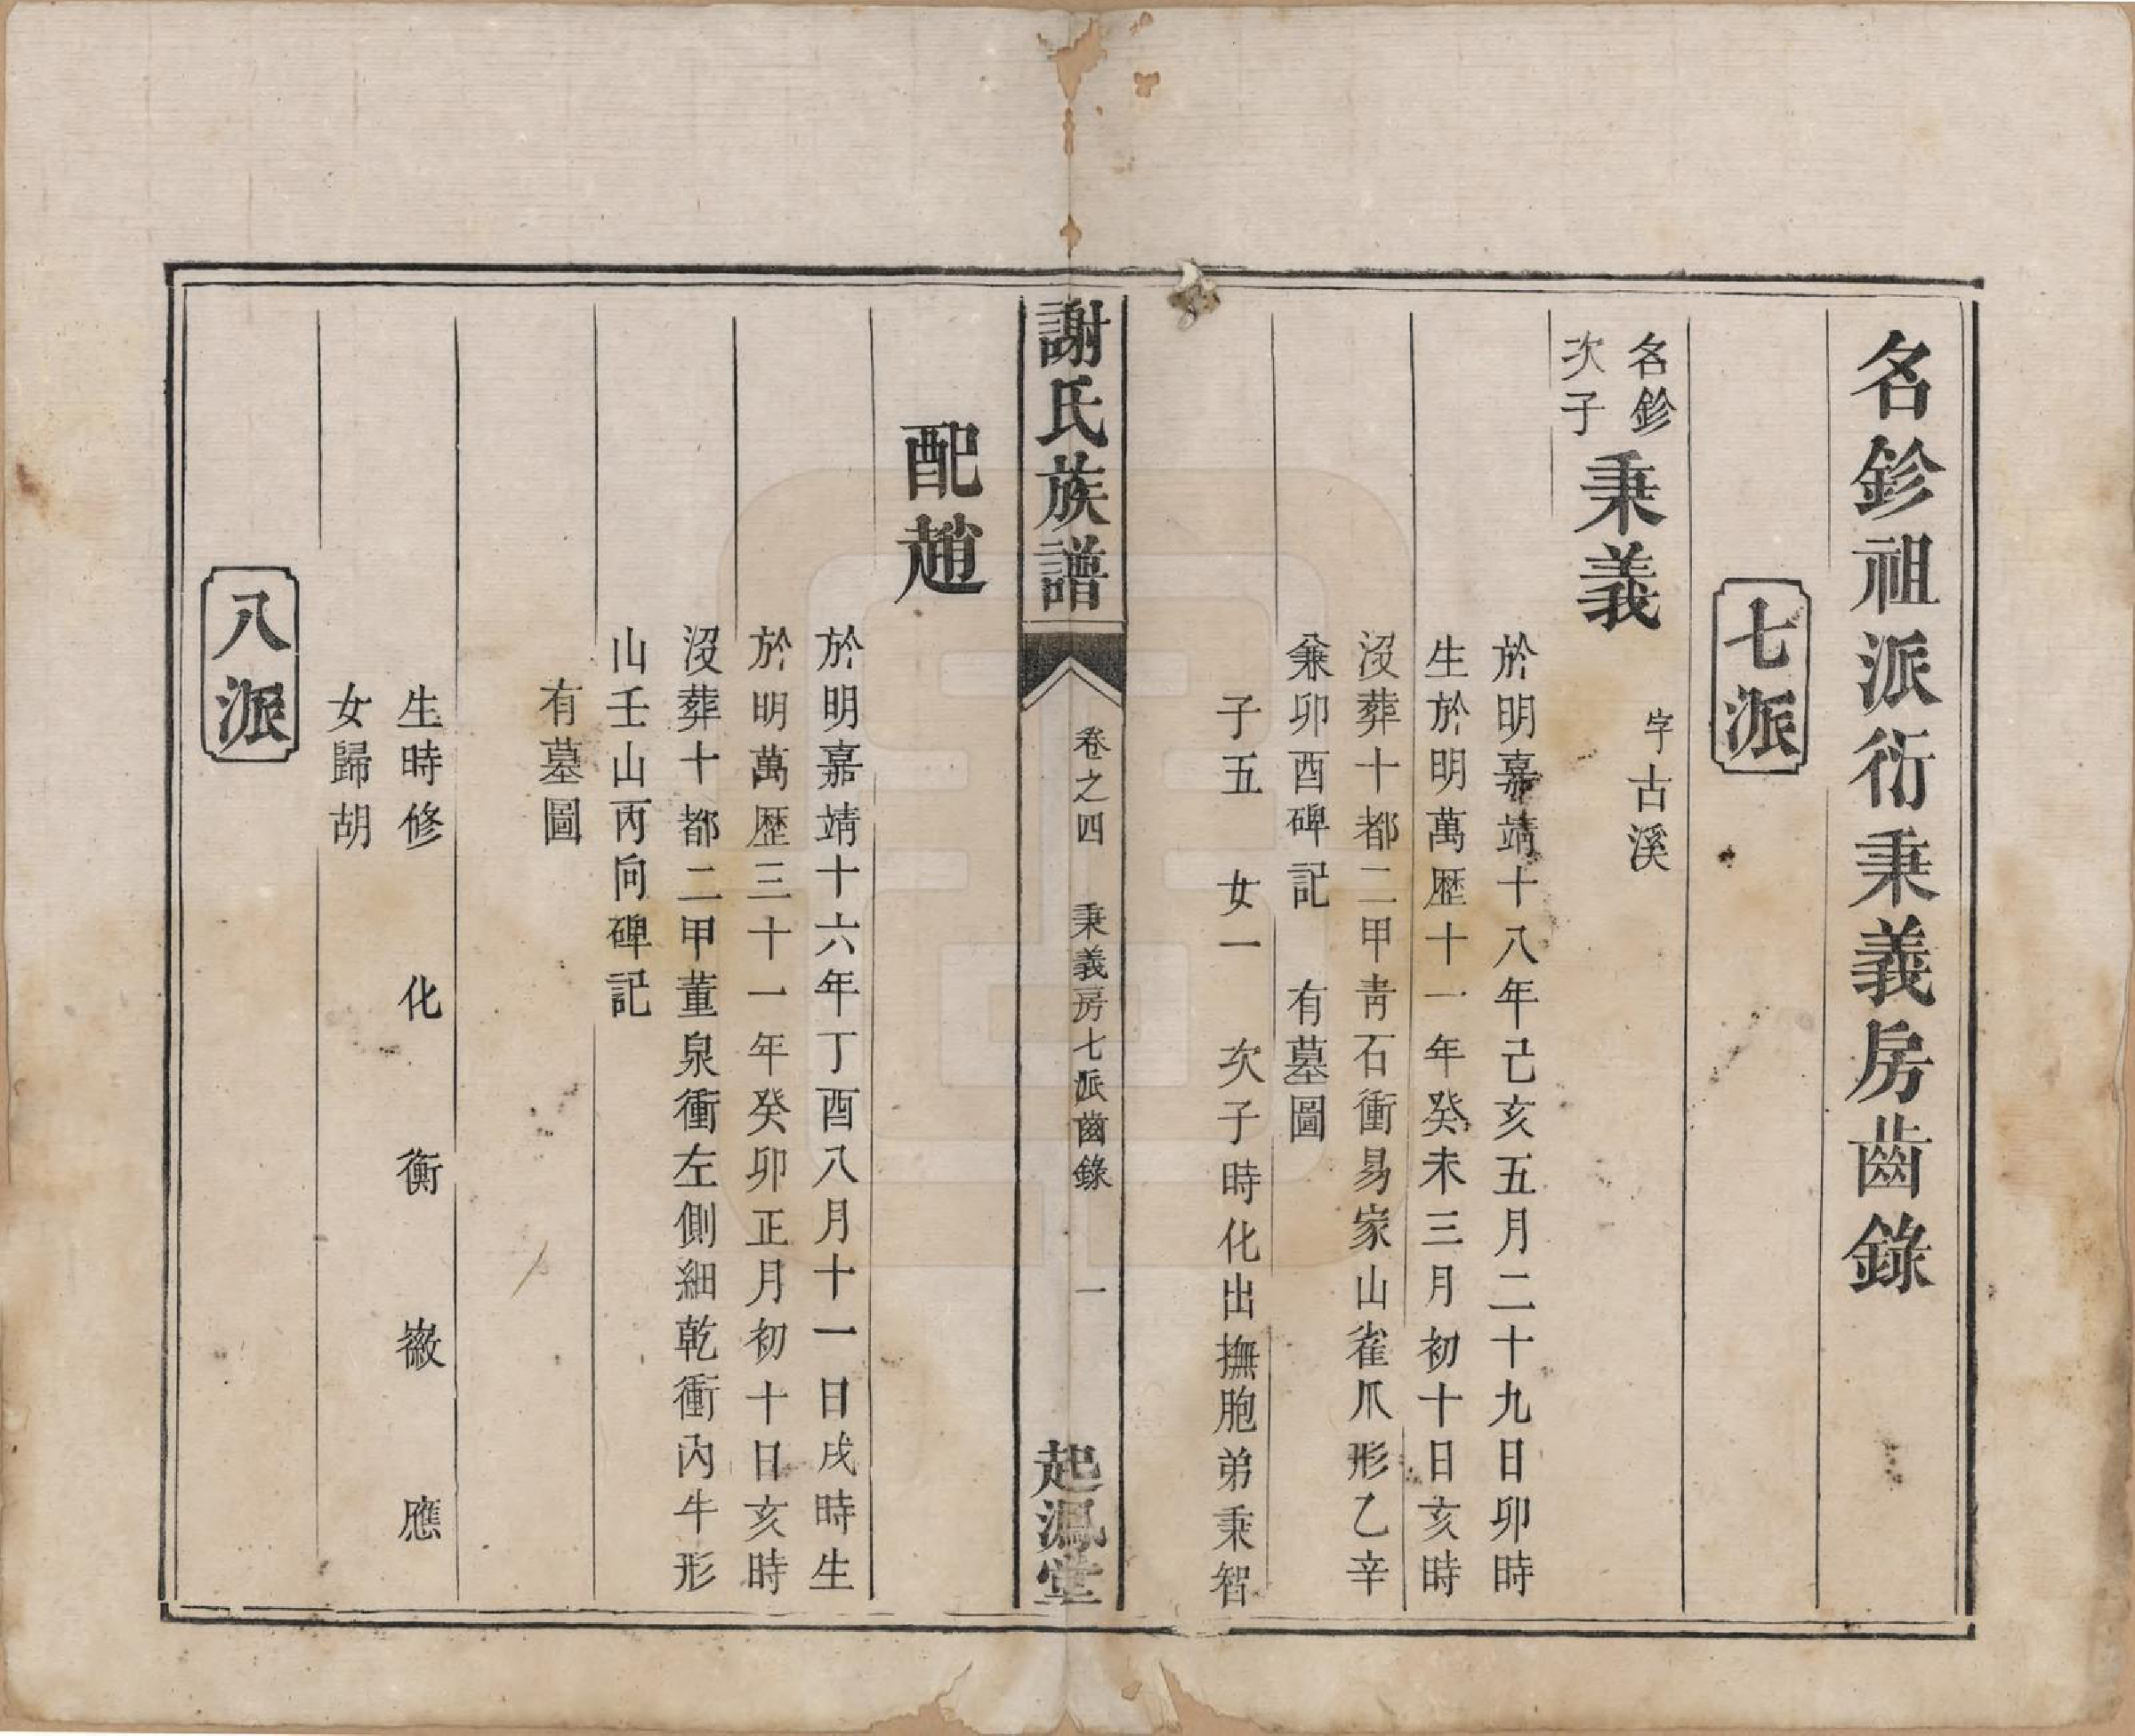 名鉁祖派衍秉義房齒錄
七派
名鉁
次子
秉義
字古溪
於明嘉靖十八年己亥五月二十九日卯時
生於明萬歷十一年癸未三月初十日亥時
沒葬十都二甲靑石衝易家山雀爪形乙辛
兼卯酉碑記 有墓圖
子五 女一 次子時化出撫胞弟秉智
謝氏族譜
卷之四 秉義房七派齒錄 一
起鳳堂
配趙
於明嘉靖十六年丁酉八月十一日戌時生
於明萬歷三十一年癸卯正月初十日亥時
沒葬十都二甲董泉衝左側細乾衝內牛形
山壬山丙向碑記
有墓圖
生時修 化 衡 徽 應
女歸胡
八派